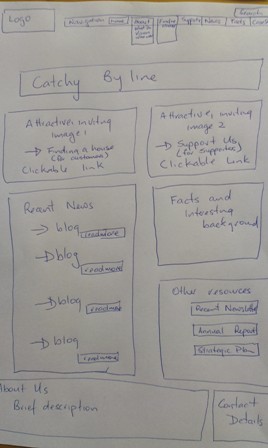 Logo
Navigation
Home
About
Support
News
Search
Catchy Byline
Attractive, inviting
image 1
→ Finding a house
(for customers)
Clickable link
Attractive, inviting
image 2
→ Support Us
(for supporters)
Clickable link
Recent News
→ blog
readmore
→ blog
readmore
→ blog
readmore
→ blog
readmore
Facts and
interesting
background
Other resources
Recent Newsletter
Annual Report
Strategic Plan
About Us
Brief description
Contact
Details